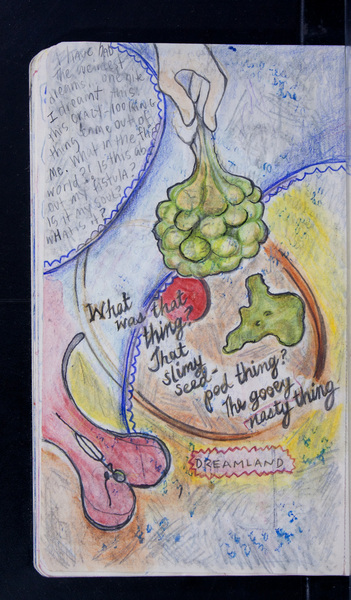 I HAVE HAD
THE weirdest
dreams. one nite
I dreamt this
this crazy-looking
thing came out of
me. What in the
world? Is this about
my fistula?
Is it my soul?
WHAT IS it
What
was that
thing?
That
slimy
seed-
pod thing?
The gooey
nasty thing
DREAMLAND